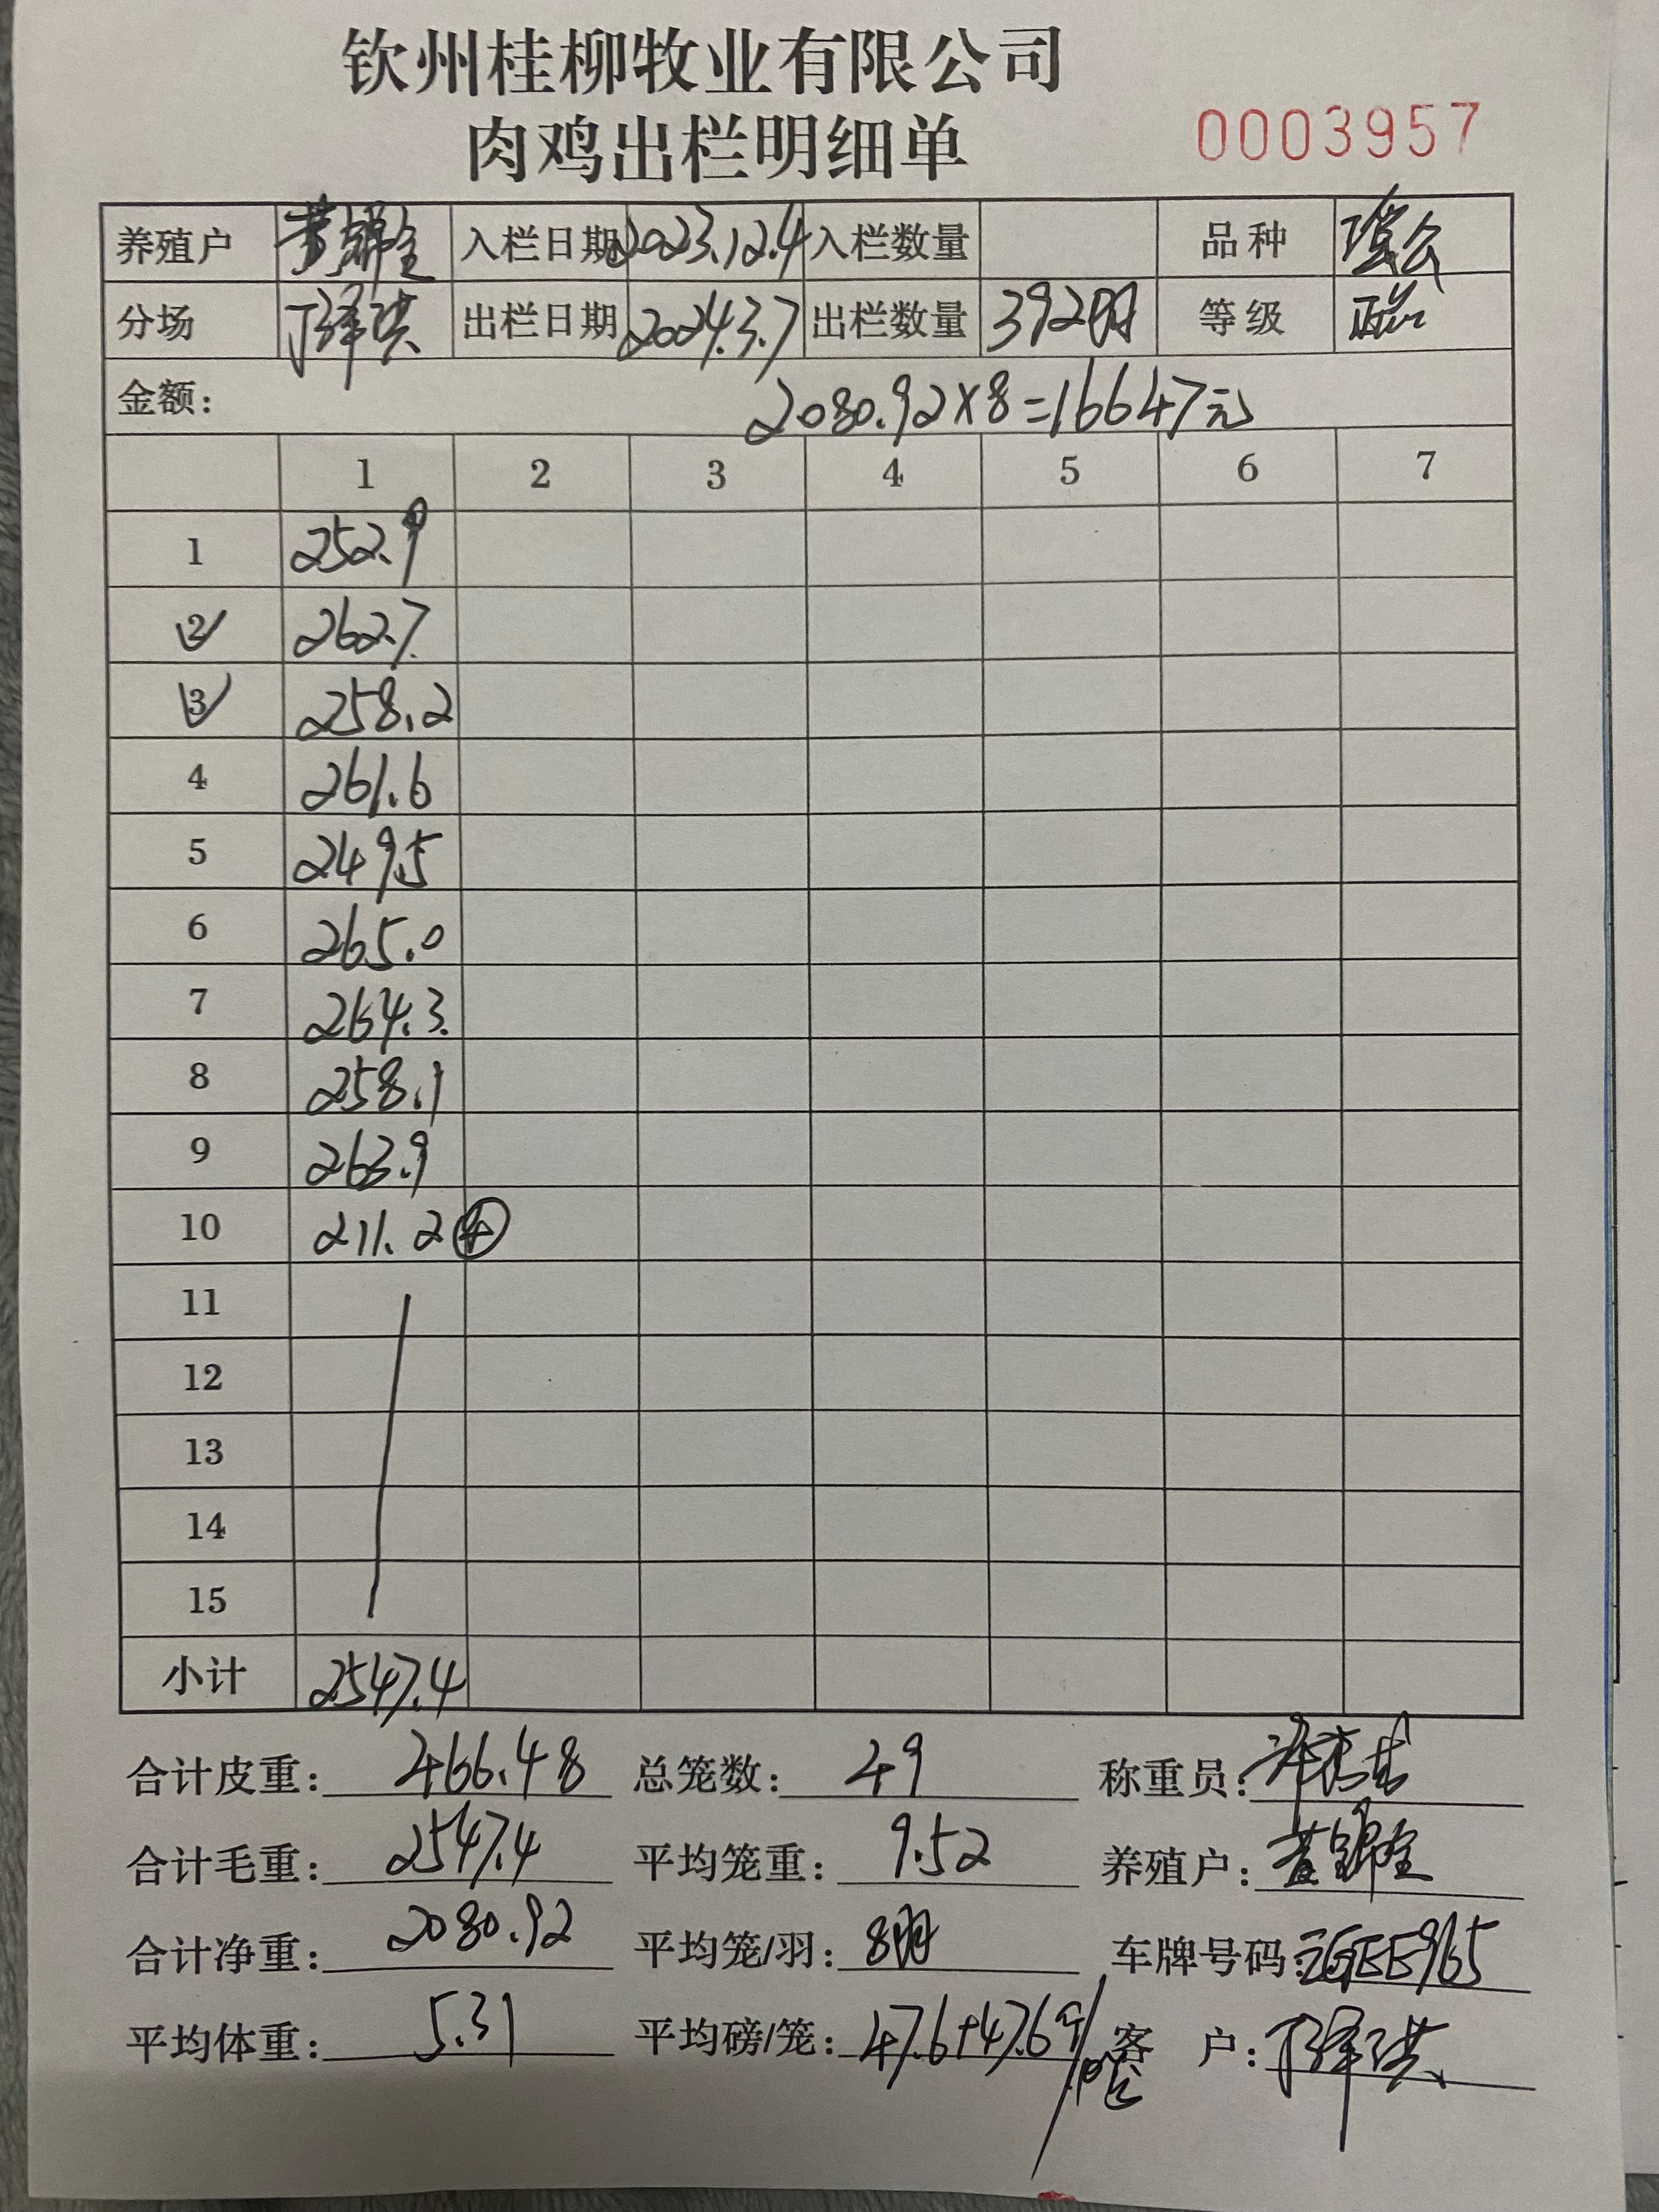 钦州桂柳牧业有限公司
肉鸡出栏明细单 0003957
养殖户 黄锦全 入栏日期 2023.12.4 入栏数量 品种
分场 丁泽洪 出栏日期 2024.3.7 出栏数量 392羽 等级 正品
金额: 2080.92×8=16647元
1 2 3 4 5 6 7
1 252.9
2 262.7
3 258.2
4 261.6
5 249.5
6 265.0
7 264.3
8 258.1
9 263.9
10 211.2 ④
11
12
13
14
15
小计 2547.4
合计皮重: 466.48 总笼数: 49 称重员:
合计毛重: 2547.4 平均笼重: 9.52 养殖户: 黄锦全
合计净重: 2080.92 平均笼/羽: 8羽 车牌号码:
平均体重: 5.31 平均磅/笼: 47.6+47.6 客 户: 丁泽洪